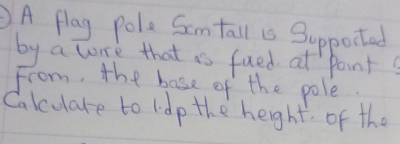 A flag pole 5cm tall is Supported
by a wire that is fixed at point
from. the base of the pole.
Calculate to 1.dp the height. of the